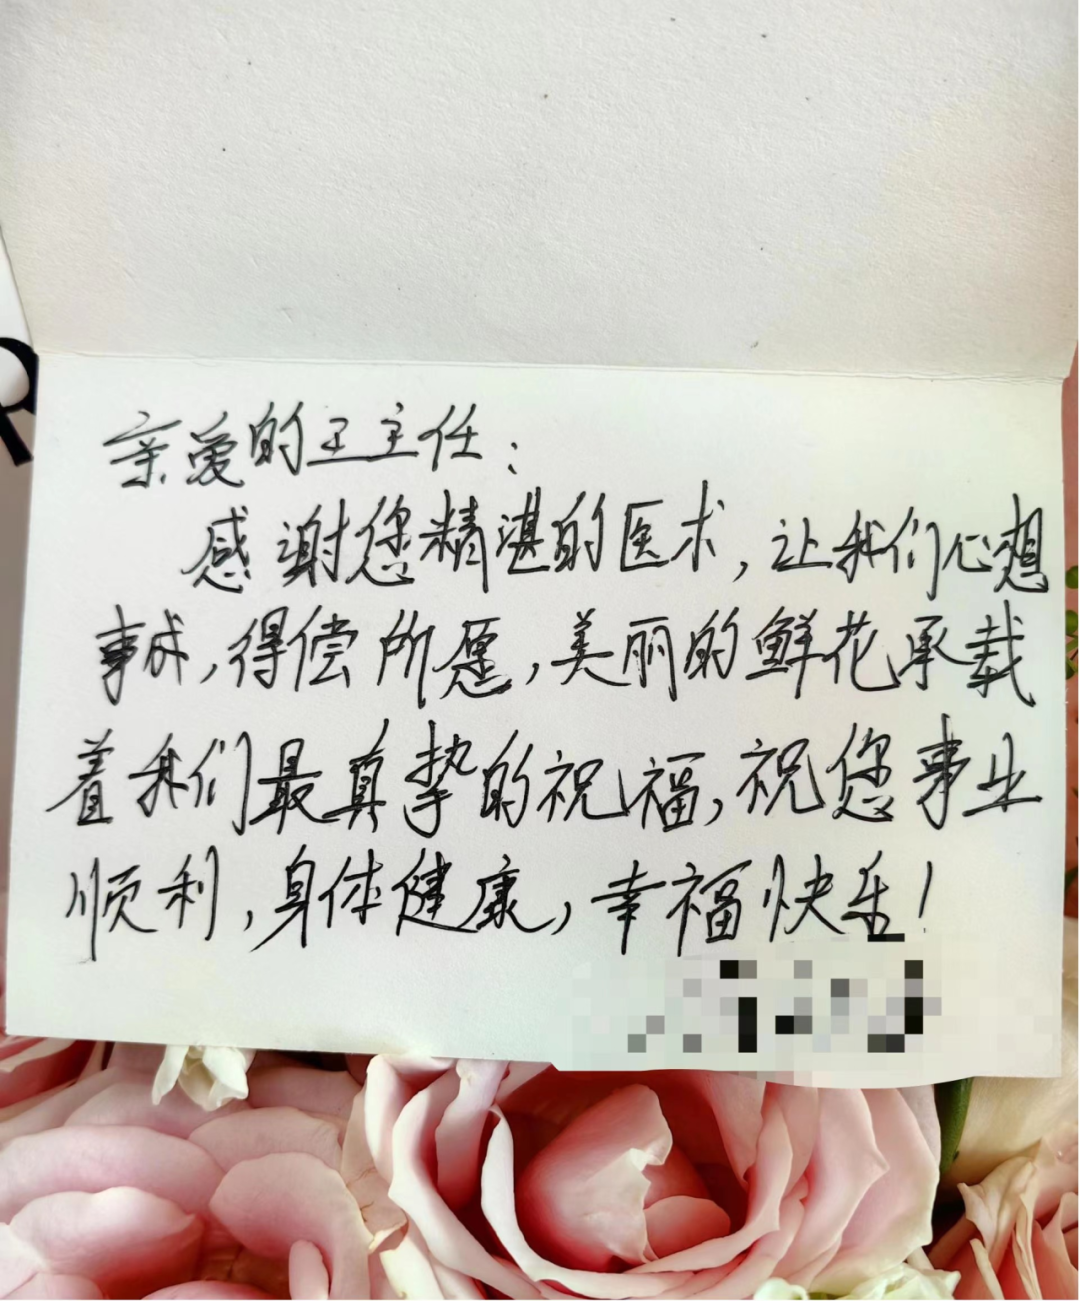 亲爱的王主任：
感谢您精湛的医术，让我们心想
事成，得偿所愿，美丽的鲜花承载
着我们最真挚的祝福，祝您事业
顺利，身体健康，幸福快乐！
R